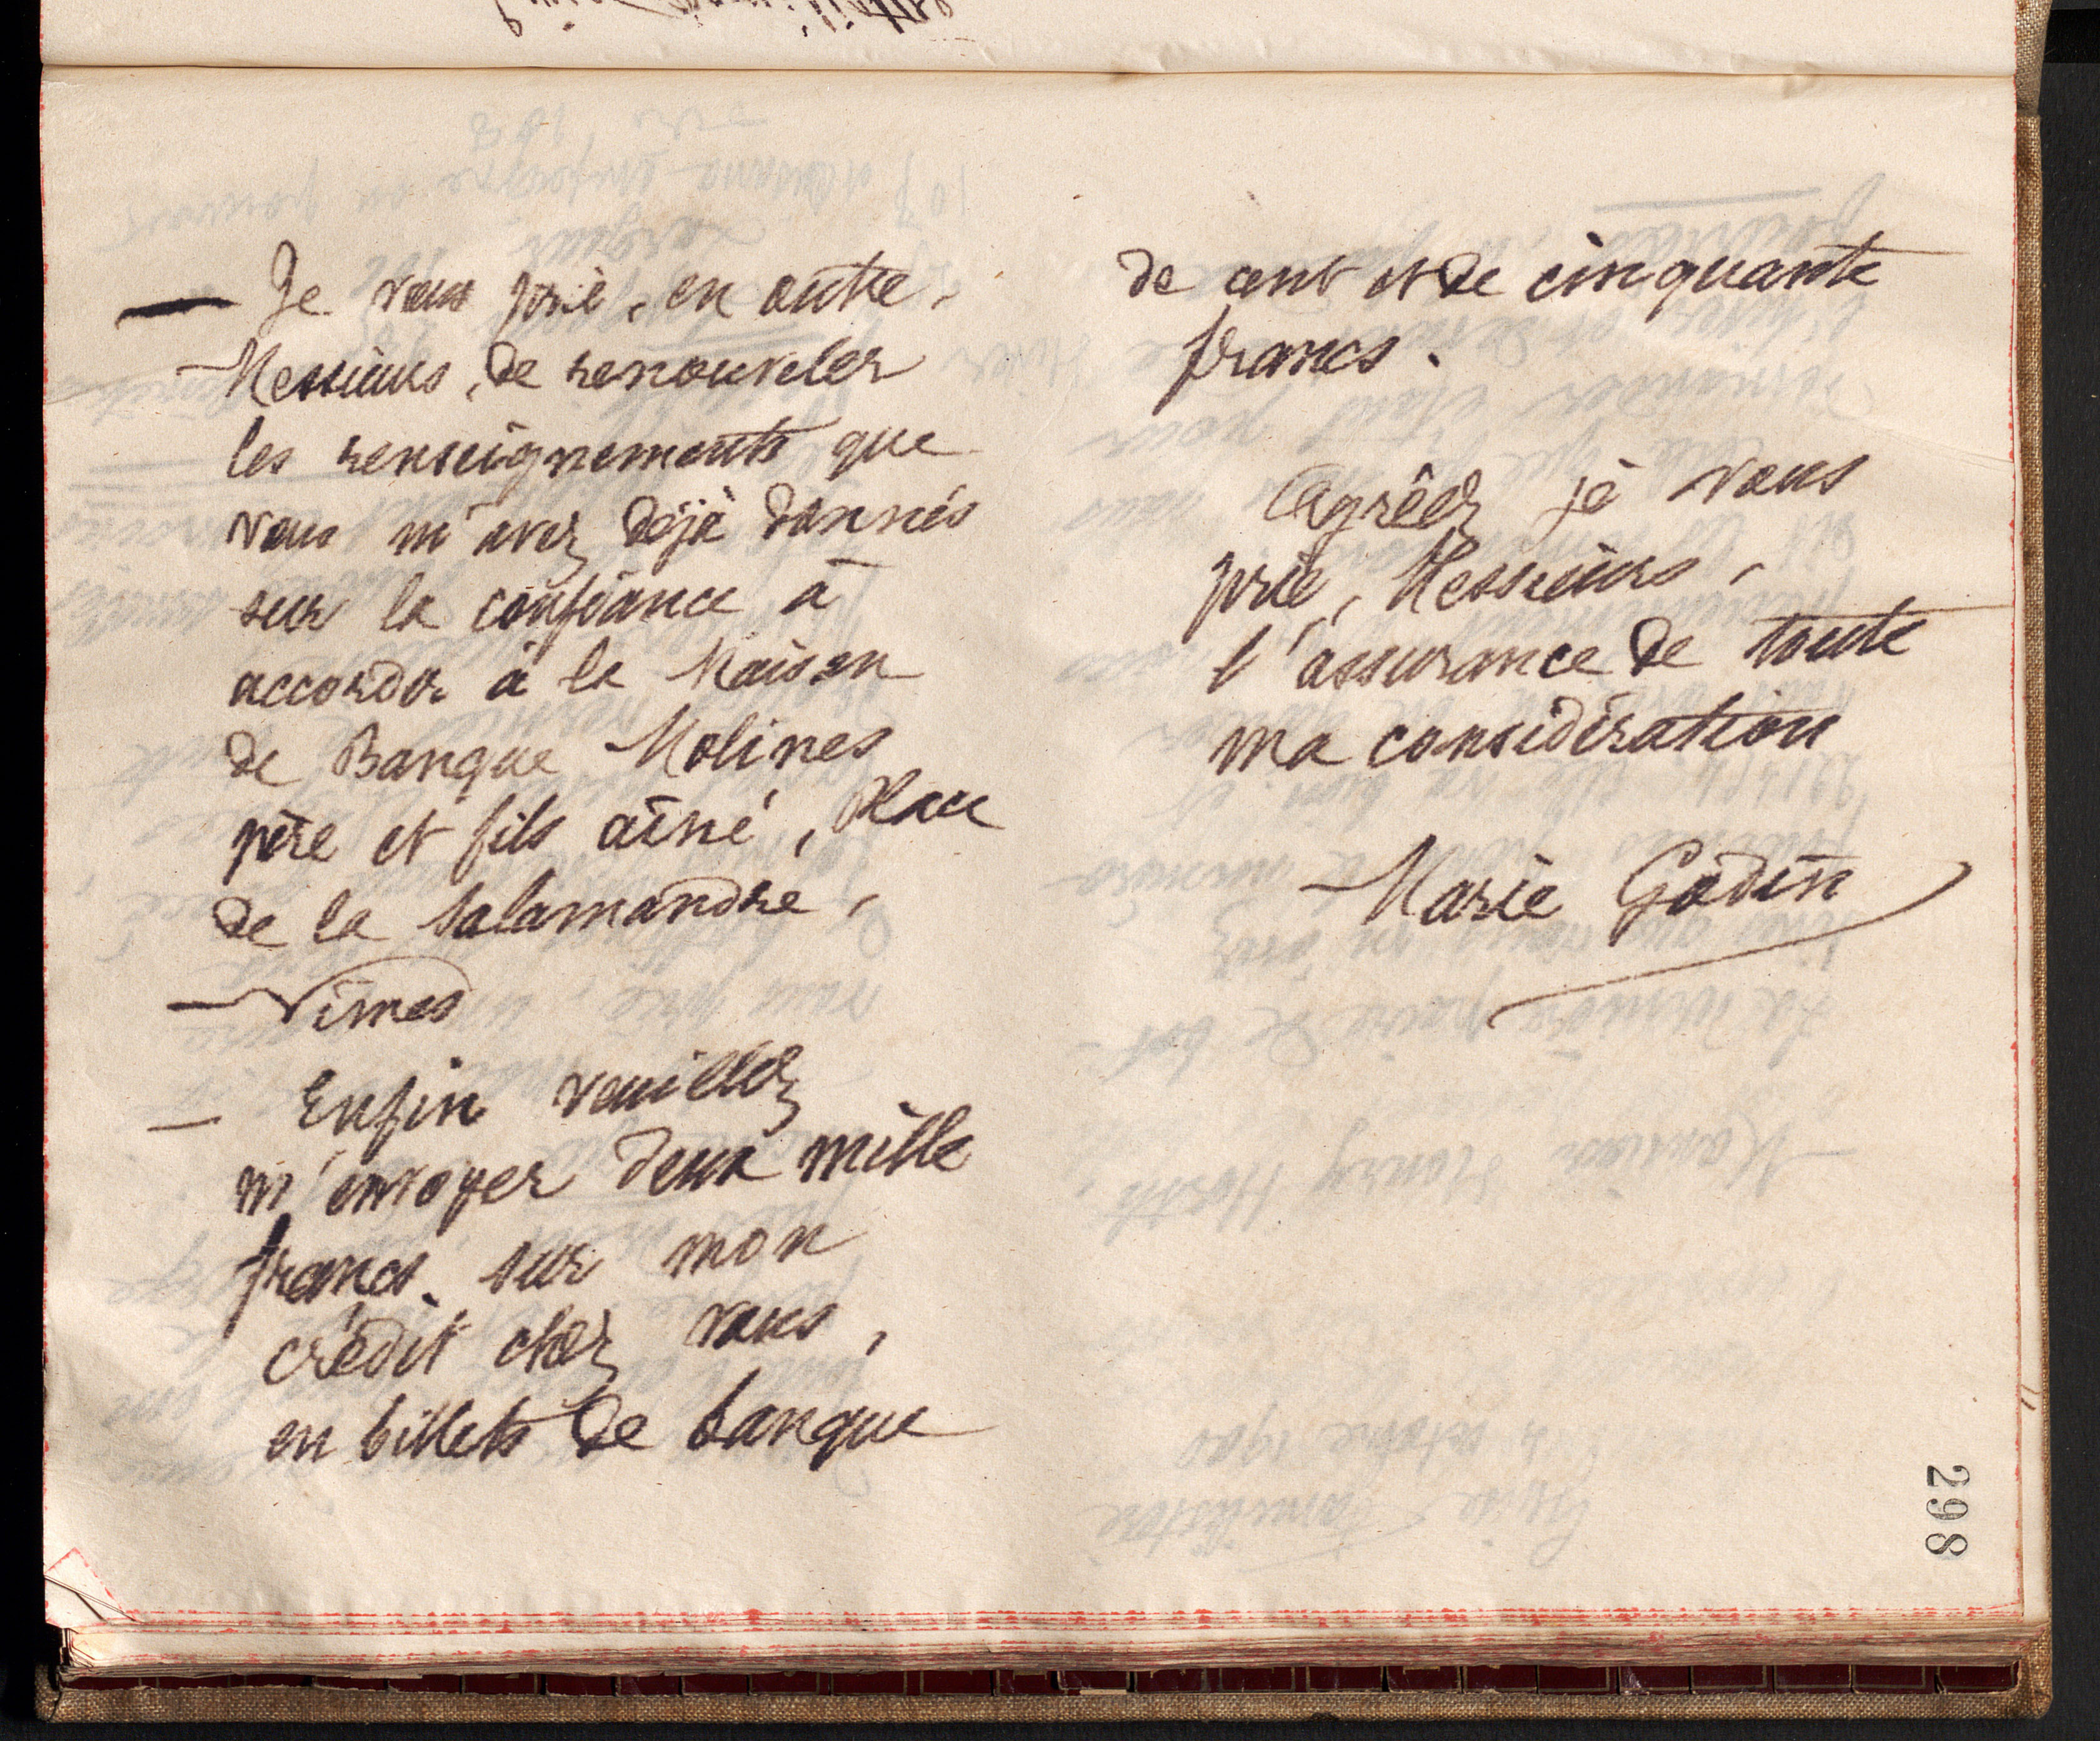 — Je vous prie, en outre,
Messieurs, de renouveler
les renseignements que
vous m'avez déjà donnés
sur la confiance à
accorder à la Maison
de Banque Molines
père et fils aîné, Place
de la Salamandre,
Nîmes
— Enfin veuillez
m'envoyer deux mille
francs. sur mon
crédit chez vous,
en billets de banque
de cent et de cinquante
francs.
Agréez je vous
prie, Messieurs,
l'assurance de toute
ma considération
Marie Godin
298